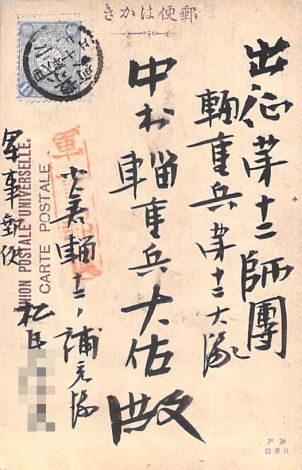 郵便はかき
出征第十二師團
輜重兵第十二大隊
中村輜重兵大佐殿
小倉輜十二ノ補充隊
松尾
軍事郵便
UNION POSTALE UNIVERSELLE.
CARTE POSTALE
神戸